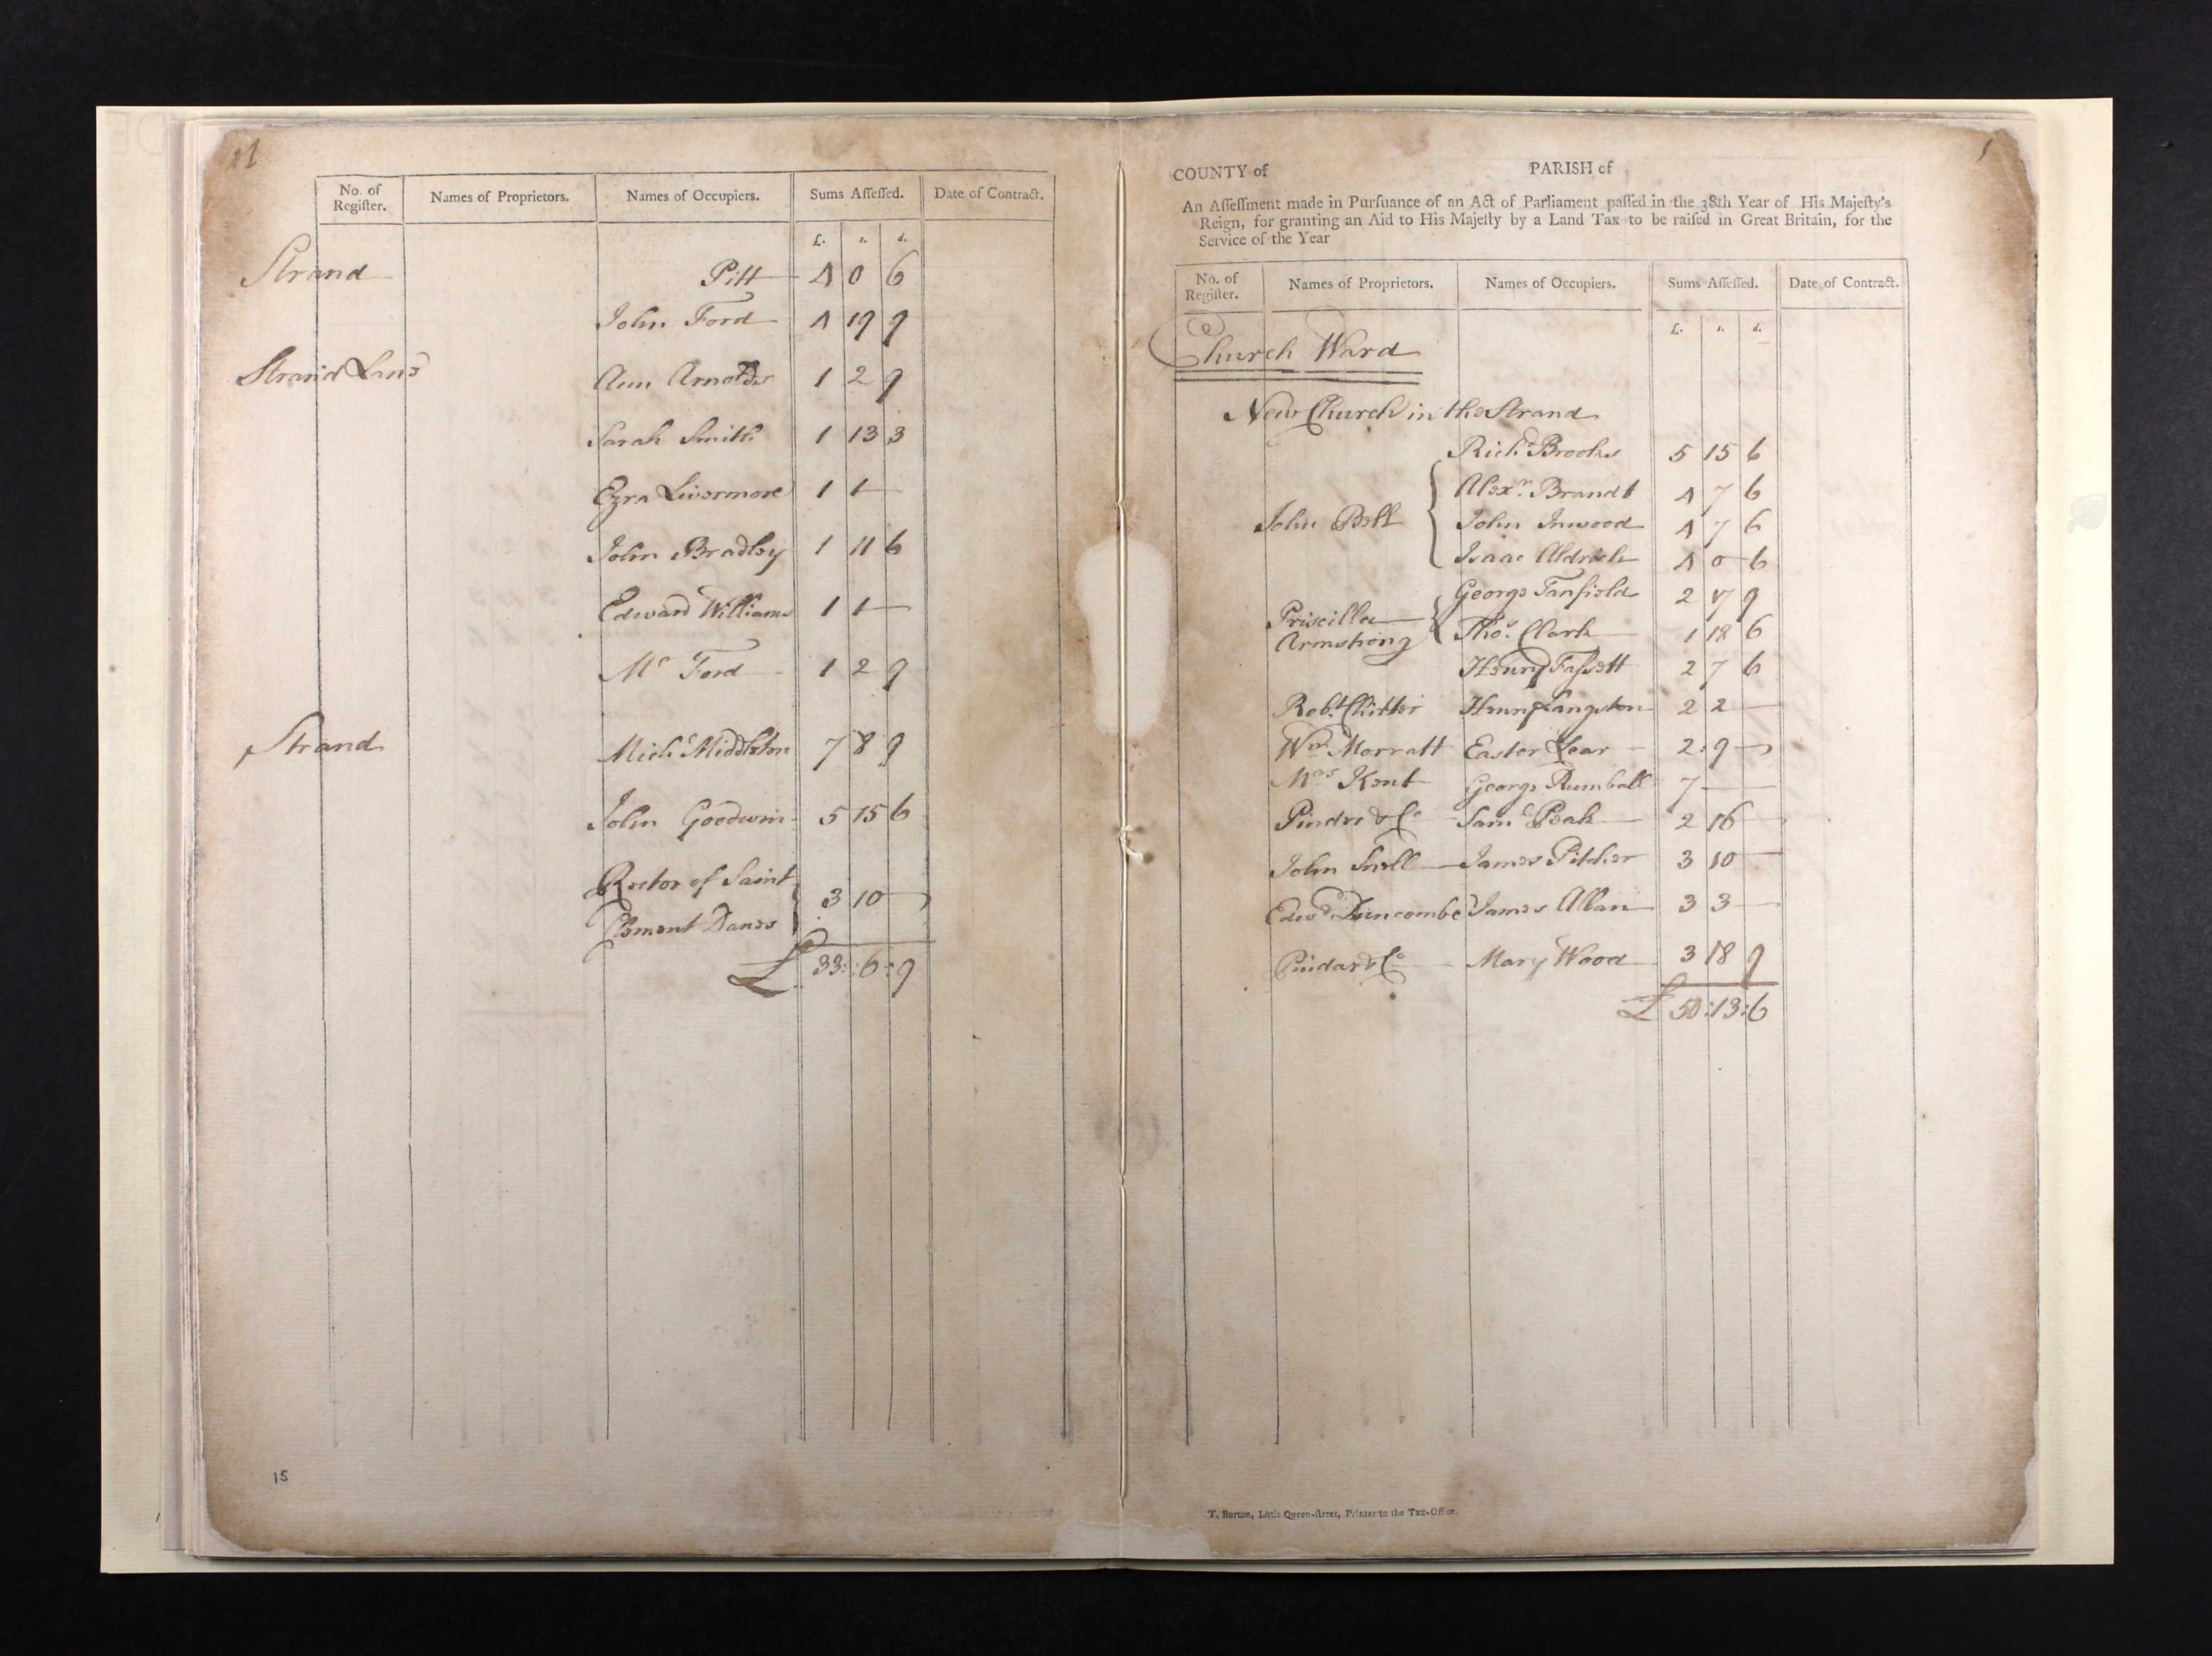 11
No. of Regiſter. Names of Proprietors. Names of Occupiers. Sums Aſſeſſed. Date of Contract.
£. s. d.
Strand Pitt 4 0 6
John Ford 4 19 9
Strand Lane Ann Arnold 1 2 9
Sarah Smith 1 13 3
Ezra Livermore 1 1 —
John Bradley 1 11 6
Edward Williams 1 1 —
Mr Ford 1 2 9
Strand Michl Middleton 7 8 9
John Goodwin 5 15 6
Rector of Saint
Clement Danes 3 10 —
£ 33:6:9
15
1
COUNTY of PARISH of
An Aſſeſſment made in Purſuance of an Act of Parliament paſſed in the 38th Year of His Majeſty's
Reign, for granting an Aid to His Majeſty by a Land Tax to be raiſed in Great Britain, for the
Service of the Year
No. of Regiſter. Names of Proprietors. Names of Occupiers. Sums Aſſeſſed. Date of Contract.
£. s. d.
Church Ward
New Church in the Strand
Richd Brooks 5 15 6
Alexr Brandt 4 7 6
John Bell John Inwood 4 7 6
Isaac Aldrich 4 0 6
George Tanfield 2 17 9
Priscilla Armstrong Thos. Clark 1 18 6
Henry Faſsett 2 7 6
Robt Chitter Henry Langston 2 2 —
Wm Morratt Easter Lear 2 9 —
Mrs Kent George Rumball 7 — —
Pinder & Co Saml Peak 2 16 —
John Snell James Pitcher 3 10 —
Edwd Duncombe James Allan 3 3 —
Pindar & Co Mary Wood 3 18 9
£ 50:13:6
T. Burton, Little Queen-ſtreet, Printer to the Tax-Office.